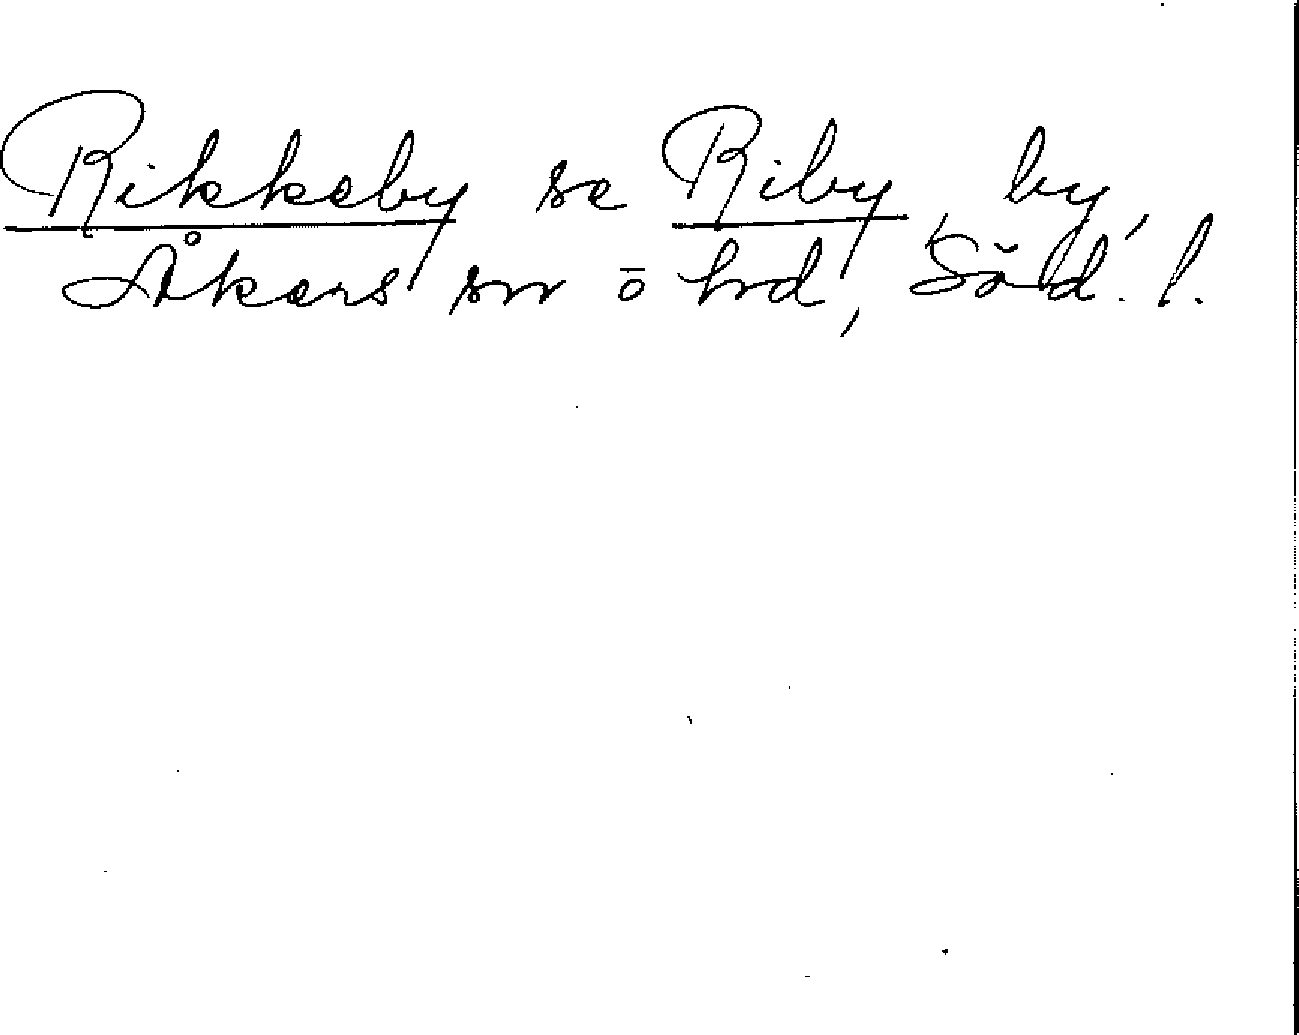 Rikkeby se Riby, by,
Åkers sn o hd, Söd. l.